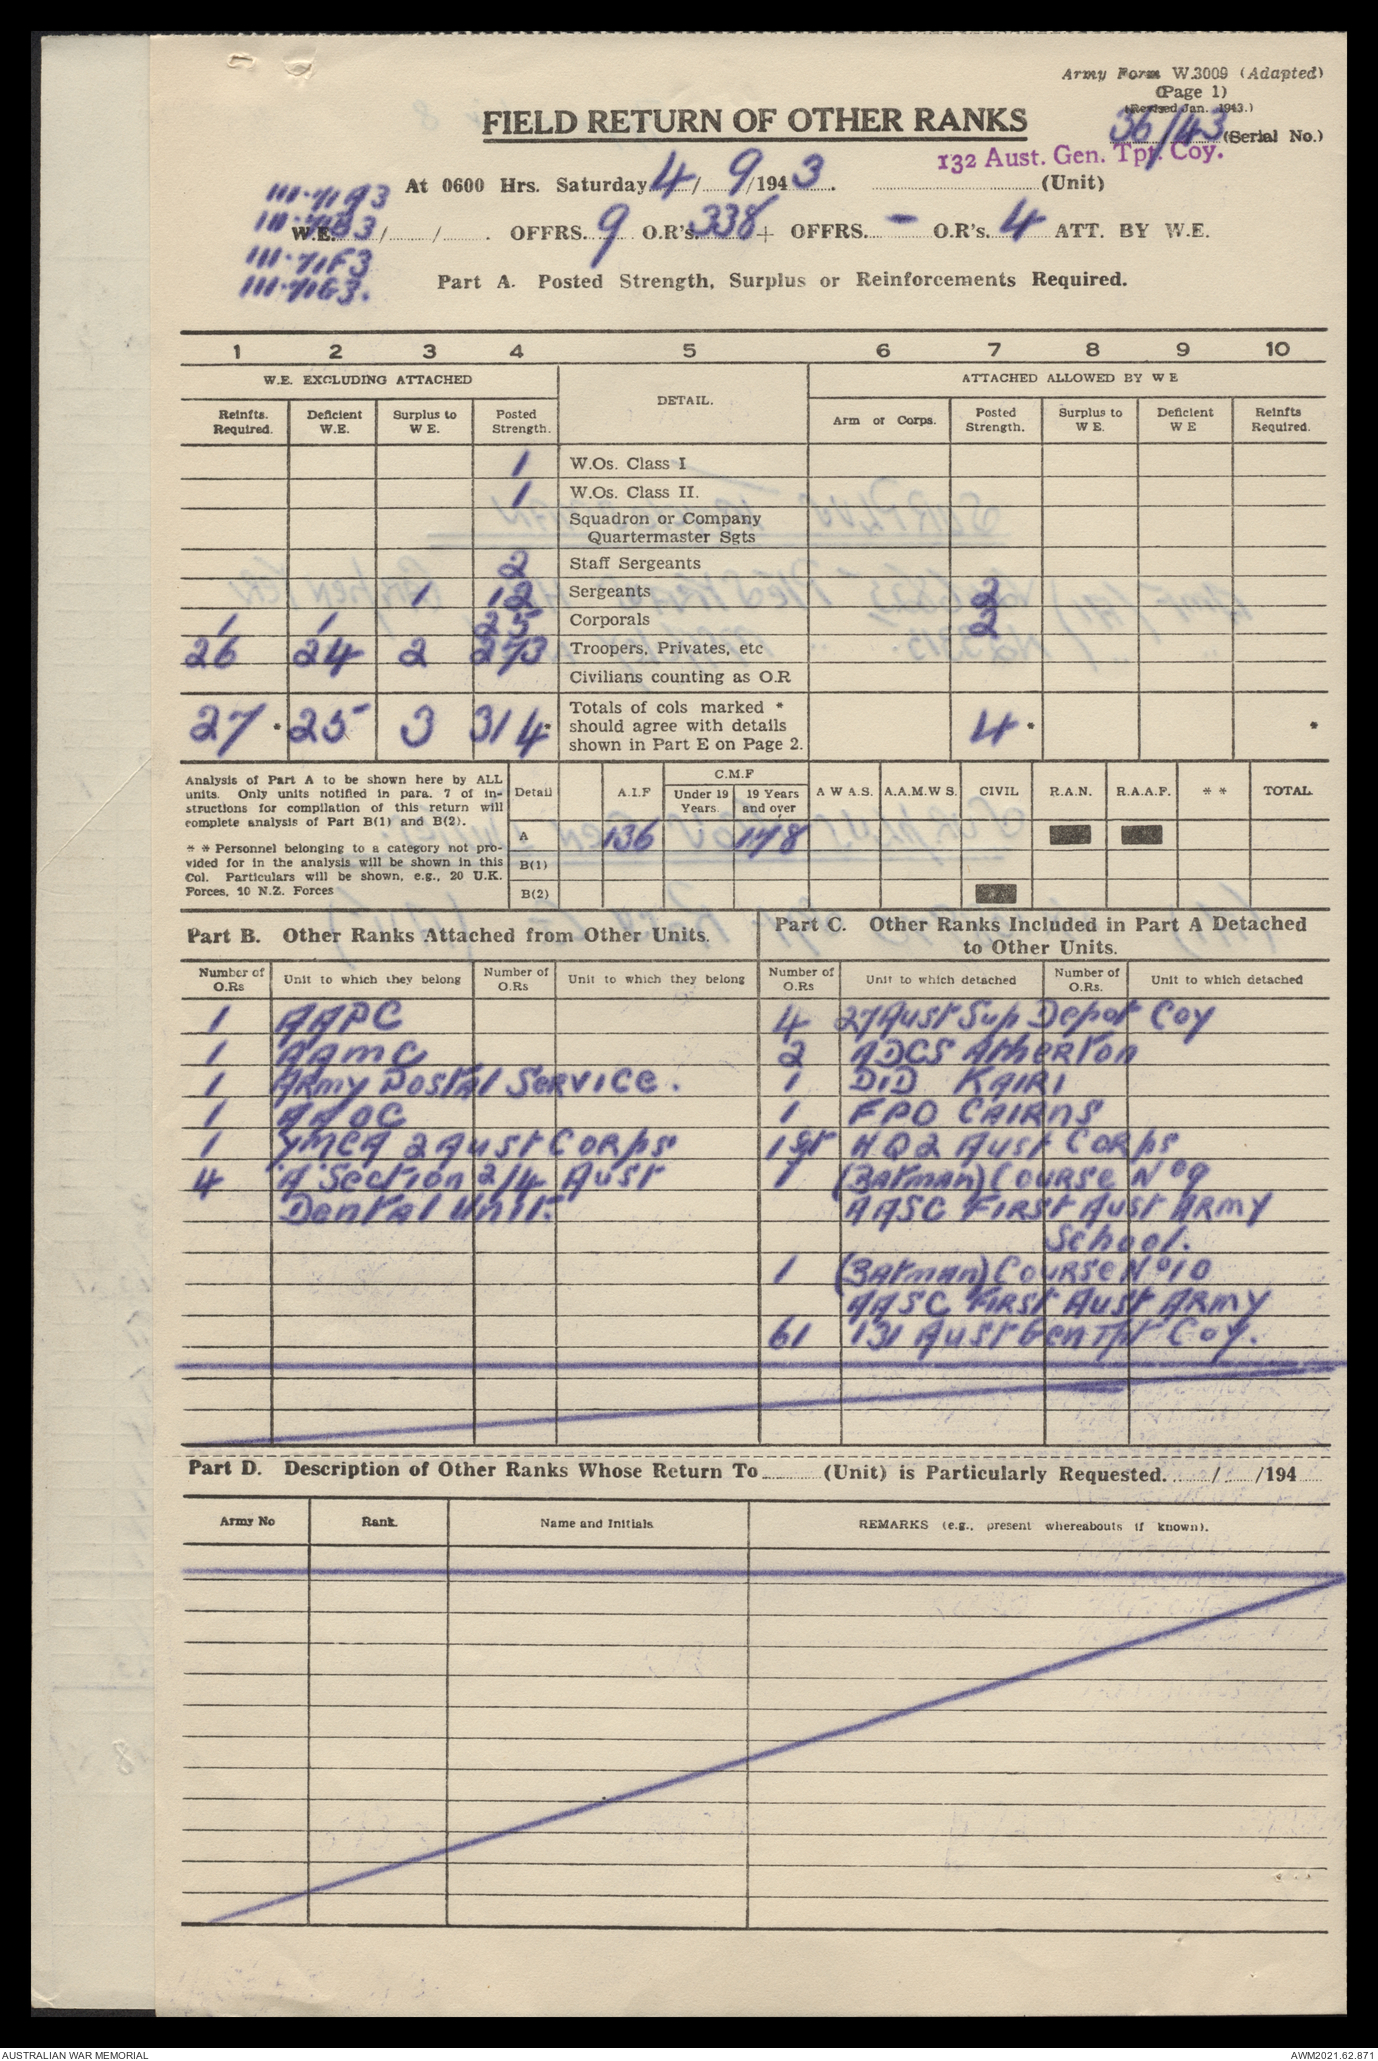 Army Form W.3009 (Adapted)
(Page 1)
(Revised Jan. 1943.)
FIELD RETURN OF OTHER RANKS
36/43 (Serial No.)
132 Aust. Gen. Tpt. Coy.
At 0600 Hrs. Saturday 4/9/1943. (Unit)
W.E. / / . OFFRS. 9 O.R's. 338 + OFFRS. - O.R's. 4 ATT. BY W.E.
Part A. Posted Strength, Surplus or Reinforcements Required.
1 2 3 4 5 6 7 8 9 10
W.E. EXCLUDING ATTACHED DETAIL. ATTACHED ALLOWED BY W E
Reinfts. Required. Deficient W.E. Surplus to W E. Posted Strength. Arm or Corps. Posted Strength. Surplus to W E. Deficient W E Reinfts Required.
1 W.Os. Class I
1 W.Os. Class II.
Squadron or Company
Quartermaster Sgts
2 Staff Sergeants
1 12 Sergeants 2
1 1 25 Corporals 2
26 24 2 273 Troopers, Privates, etc
Civilians counting as O.R
27 * 25 3 314 * Totals of cols marked * should agree with details shown in Part E on Page 2. 4 * *
Analysis of Part A to be shown here by ALL
units. Only units notified in para. 7 of in-
structions for compilation of this return will
complete analysis of Part B(1) and B(2).
* * Personnel belonging to a category not pro-
vided for in the analysis will be shown in this
Col. Particulars will be shown, e.g., 20 U.K.
Forces, 10 N.Z. Forces
Detail A.I.F C.M.F Under 19 Years. 19 Years and over A W A S. A.A.M.W S. CIVIL R.A.N. R.A.A.F. * * TOTAL
A 136 178
B(1)
B(2)
Part B. Other Ranks Attached from Other Units.
Part C. Other Ranks Included in Part A Detached
to Other Units.
Number of O.Rs Unit to which they belong Number of O.Rs Unit to which they belong Number of O.Rs Unit to which detached Number of O.Rs. Unit to which detached
1 AAPC 4 27 Aust Sup Depot Coy
1 AAMC 2 ADCS Atherton
1 Army Postal Service. 1 DID KAIRI
1 AAOC 1 FPO CAIRNS
1 YMCA 2 Aust Corps 1 Sgt HQ 2 Aust Corps
4 'A' Section 2/4 Aust 1 (Batman) Course No 9
Dental Unit. AASC First Aust Army
School.
1 (Batman) Course No 10
AASC First Aust Army
61 131 Aust Gen Tpt Coy.
Part D. Description of Other Ranks Whose Return To (Unit) is Particularly Requested. / /194
Army No Rank. Name and Initials REMARKS (e.g., present whereabouts if known).
AUSTRALIAN WAR MEMORIAL AWM2021.62.871